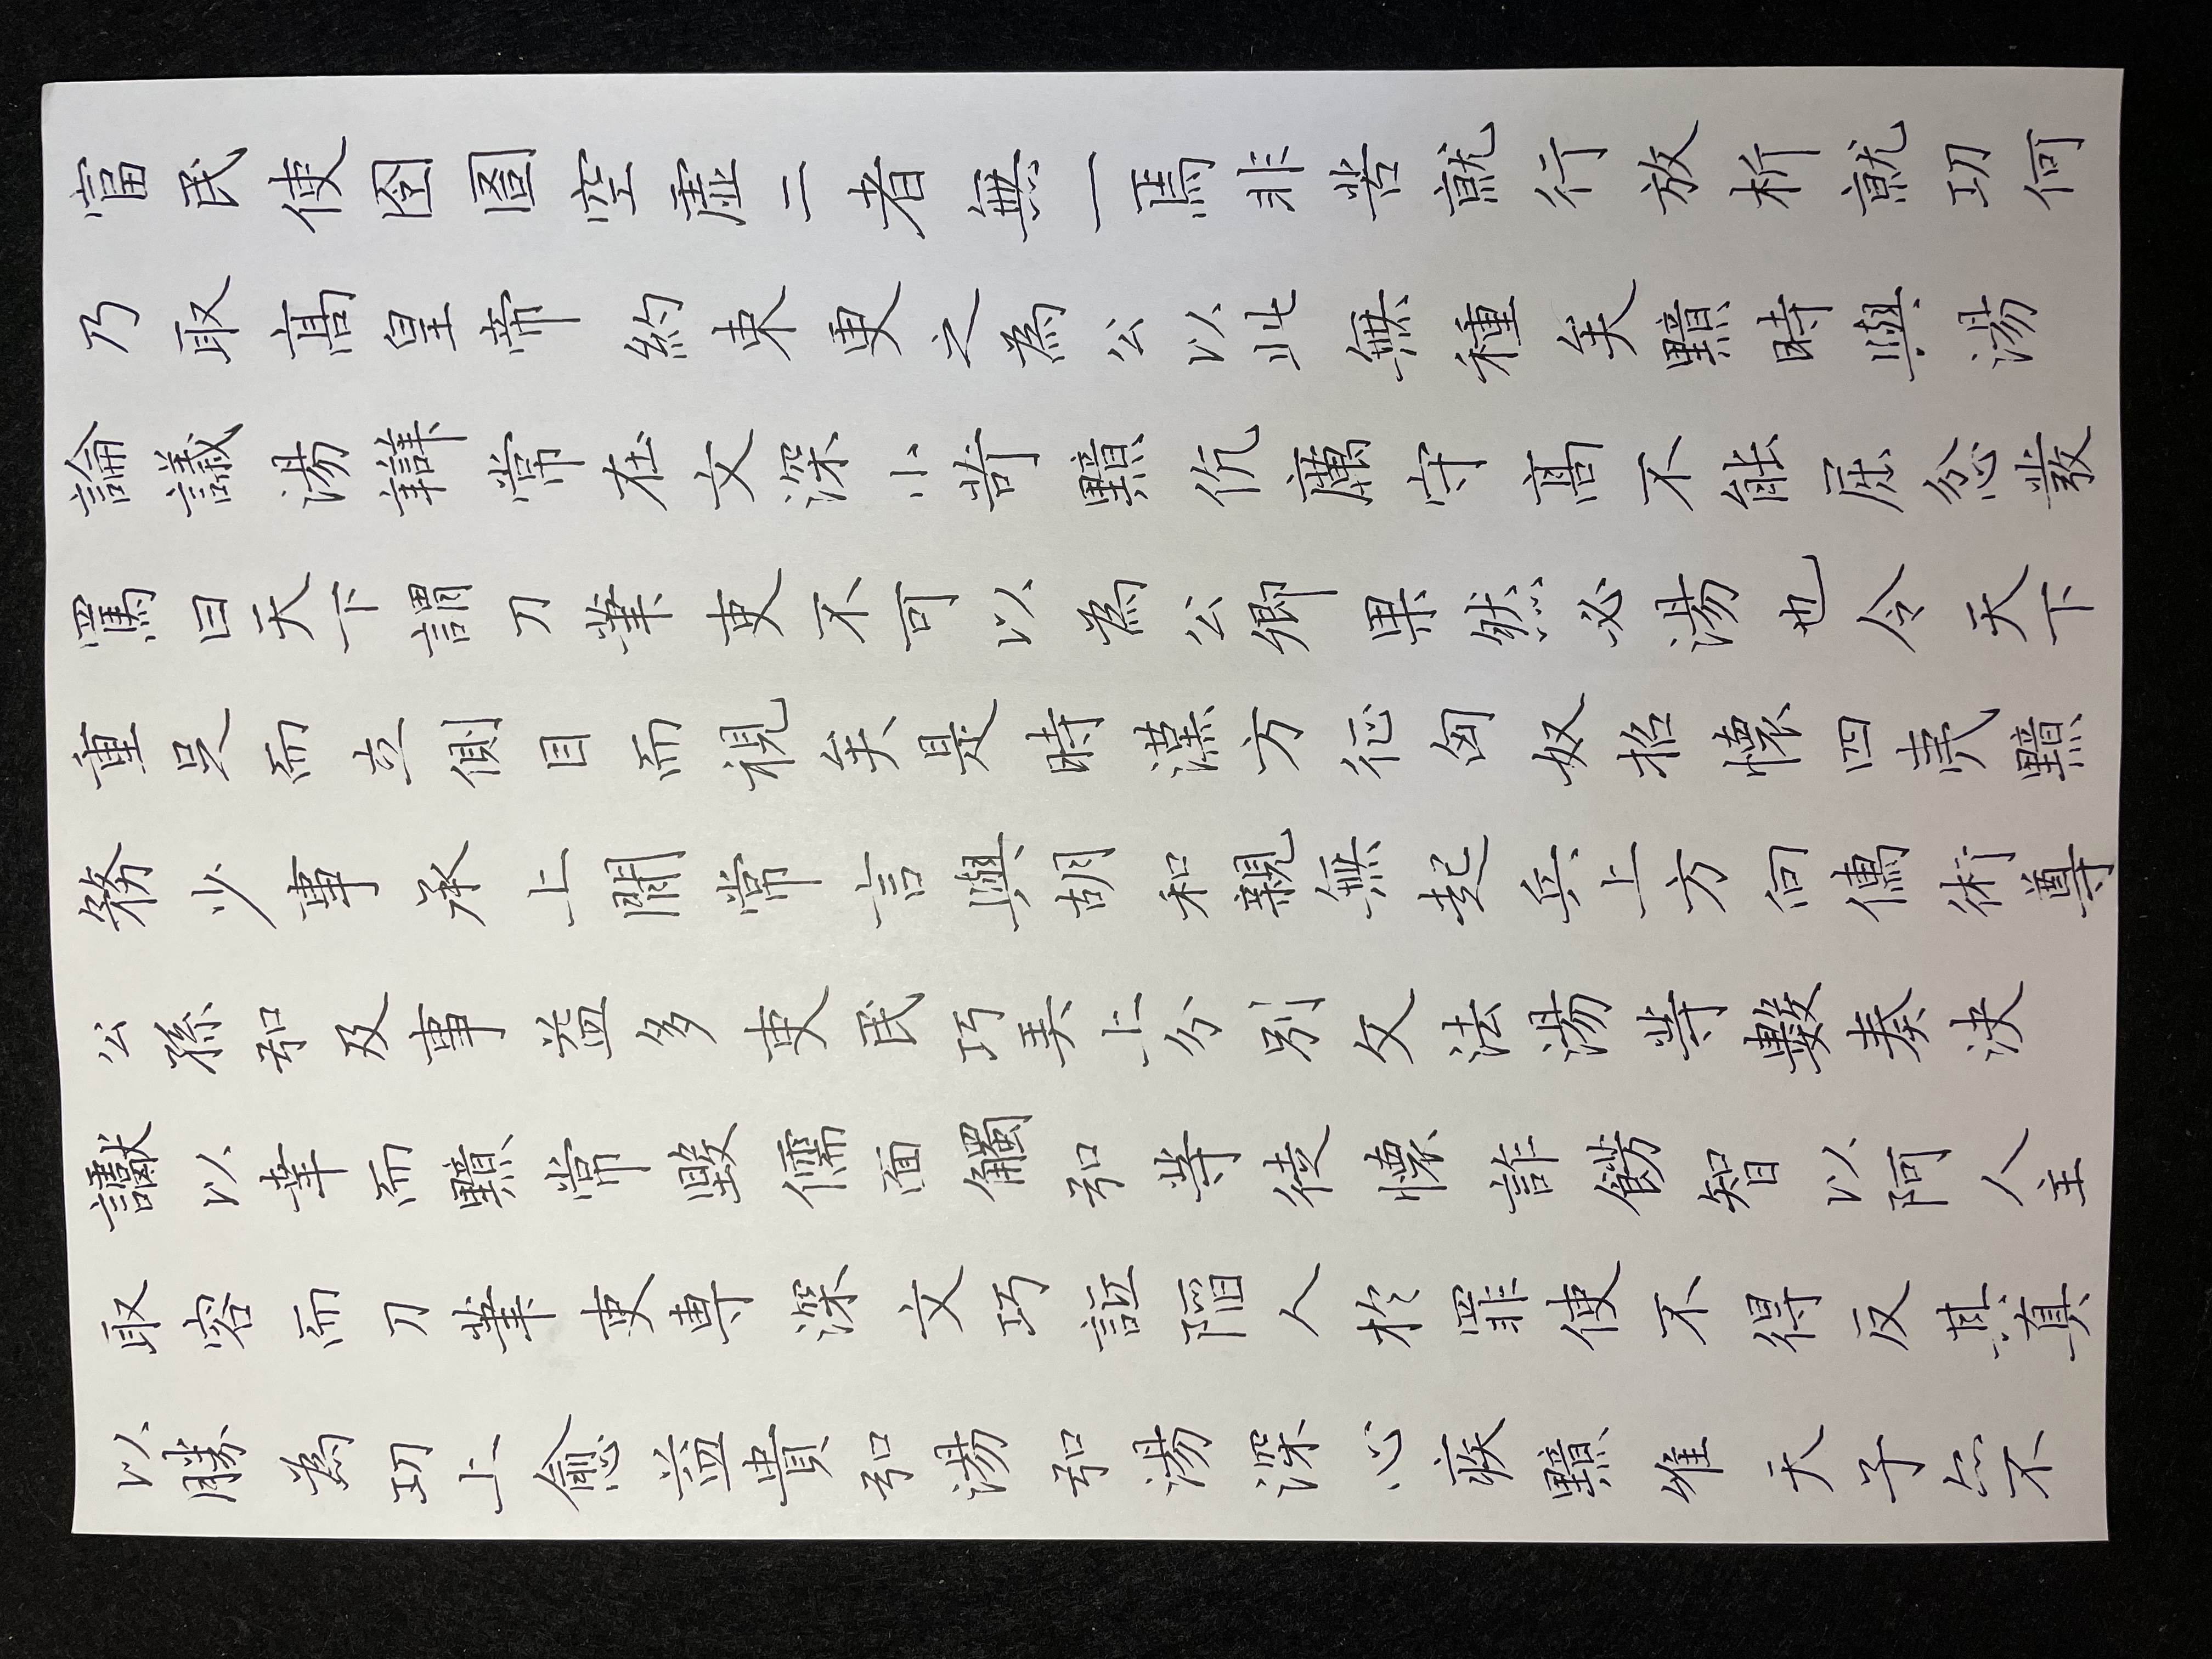 富民使囹圄空虛二者無一焉非苦就行放析就功何
乃取高皇帝約束更之為公以此無種矣黯時與湯
論議湯辯常在文深小苛黯伉厲守高不能屈忿發
罵曰天下謂刀筆吏不可以為公卿果然必湯也令天下
重足而立側目而視矣是時漢方征匈奴招懷四夷黯
務少事承上閒常言與胡和親無起兵上方向儒術尊
公孫弘及事益多吏民巧弄上分別文法湯等數奏決
讞以幸而黯常毀儒面觸弘等徒懷詐飾智以阿人主
取容而刀筆吏專深文巧詆陷人於罪使不得反其真
以勝為功上愈益貴弘湯弘湯深心疾黯唯天子亦不